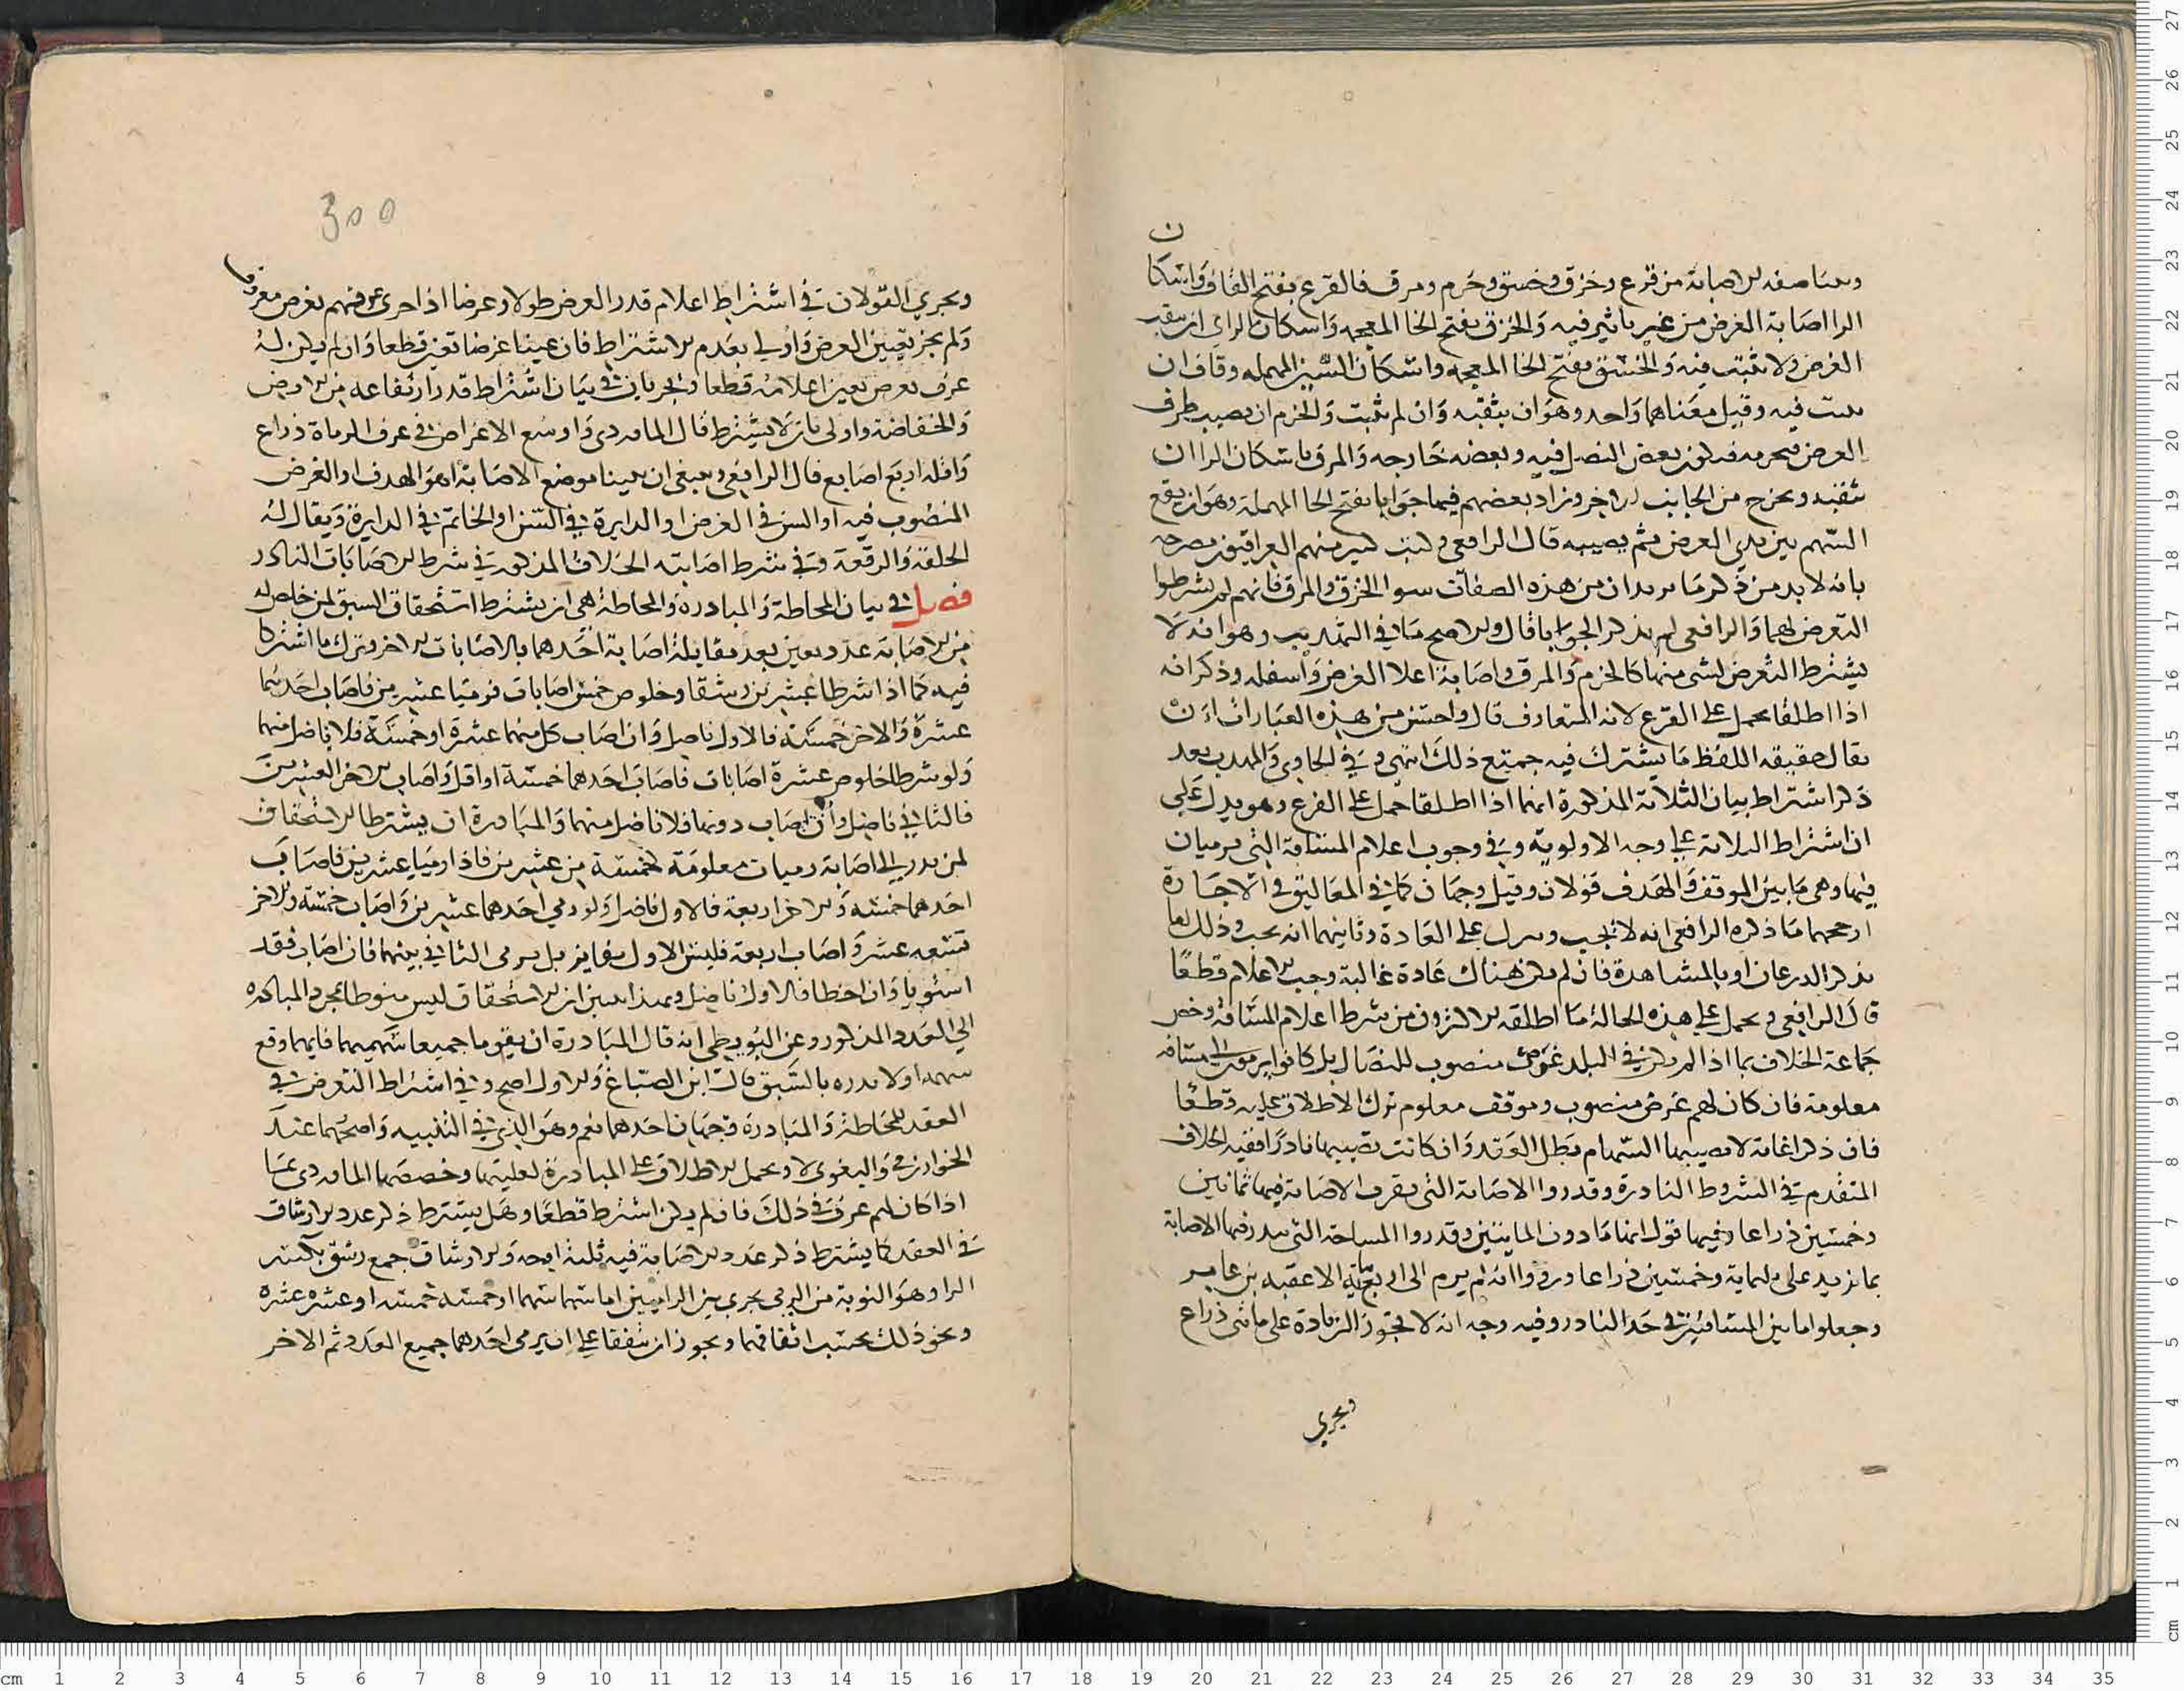 وبينا صفة الاصابة من قرع وخزق وخسق وخرم ومرق فالقرع بفتح القاف واسكان
الرا اصابة الغرض من غير تاثير فيه والخزق بفتح الخا المعجمه واسكان الزاي ان يثقب
الغرض ولا يثبت فيه والخسق بفتح الخا المعجمه واسكان السين المهمله وقاف ان
يثبت فيه وقيل معناهما واحد وهو ان يثقبه وان لم يثبت والخرم ان يصيب طرف
الغرض فيخرمه فيكون بعض النصل فيه وبعضه خارجه والمرق باسكان الرا ان
يثقبه ويخرج من الجانب الاخر وزاد بعضهم فيما جوابا بفتح الحا المهملة وهو ان يقع
السهم بين يدي الغرض ثم يصيبه قال الرافعي وكتب كثير منهم العراقيون مصرحه
بانه لا بد من ذكر ما يريدان من هذه الصفات سوا الخزق والمرق فانهم لم يشرطوا
التعرض لهما والرافعي لم يذكر الجوابا قال والاصح ما في التهذيب وهو انه لا
يشترط التعرض لشي منها كالخرم والمرق واصابة اعلا الغرض واسفله وذكر انه
اذا اطلقا يحمل على القرع لانه المتعارف قال واحسن من هذه العبارات ان
يقال حقيقه اللفظ ما يشترك فيه جميع ذلك انتهى وفي الحاوي والمهذب بعد
ذكر اشتراط بيان الثلاثة المذكورة انهما اذا اطلقا حمل على القرع وهو يدل على
ان اشتراط الثلاثة على وجه الاولوية وفي وجوب اعلام المسافة التي يرميان
فيها وهي ما بين الموقف والهدف قولان وقيل وجهان كما في المعاليق في الاجارة
ارجحهما ما ذكره الرافعي انه لا يجب وينزل على العادة وثانيهما انه يجب وذلك اما
بذكر الذرعان او بالمشاهدة فان لم يكن هناك عادة غالبة وجب الاعلام قطعا
قال الرافعي ويحمل على هذه الحالة ما اطلقه الاكثرون من شرط اعلام المسافة وخص
جماعة الخلاف بما اذا لم يكن في البلد غرض منصوب للنضال بل كانوا يرمون الى مسافه
معلومة فان كان لهم غرض منصوب وموقف معلوم نزل الاطلاق عليه قطعا
فان ذكر اغاية لا تصيبها السهام بطل العقد وان كانت تصيبها نادرا ففيه الخلاف
المتقدم في الشروط النادرة وقدروا الاصابة التي يقرب الاصابة فيها ثمانين
وخمسين ذراعا وفيها قول انها ما دون المايتين وقدروا المساحة التي يندر فيها الاصابة
بما يزيد على ثلثماية وخمسين ذراعا ورووا انه لم يرم الى اربعماية الا عقبه بن عامر
وجعلوا ما بين المسافتين في حد النادر وفيه وجه انه لا تجوز الزيادة على مائتي ذراع
ويجري
300
ويجري القولان في اشتراط اعلام قدر الغرض طولا وعرضا اذا جرى عرفهم بغرض معروف
ولم يجز تعيين الغرض واولى بعدم الاشتراط فان عينا غرضا تعين قطعا وان لم يكن له
عرف بغرض تعين اعلامه قطعا ويجريان في بيان اشتراط قدر ارتفاعه من الارض
وانخفاضه واولى بان لا يشترط قال الماوردي واوسع الاغراض في عرف الرماة ذراع
واقله اربع اصابع قال الرافعي وينبغي ان يبينا موضع الاصابة اهو الهدف او الغرض
المنصوب فيه او الشن في الغرض او الدايرة في الشن او الخاتم في الدايرة ويقال له
الحلقة والرقعة وفي شرط اصابته الخلاف المذكور في شرط الاصابات النادر
فصل في بيان المحاطة والمبادرة والمحاطة هي ان يشترط استحقاق السبق لمن خلص له
من الاصابة عدد معين بعد مقابلة اصابة احدهما بالاصابات الاخر وترك ما اشتركا
فيه كما اذا شرطا عشرين رشقا وخلوص خمس اصابات فرميا عشرين فاصاب احدهما
عشرة والاخر خمسة فالاول ناضل وان اصاب كل منهما عشرة او خمسة فلا ناضل منهما
ولو شرطا خلوص عشرة اصابات فاصاب احدهما خمسة او اقل واصاب الاخر العشرين
فالثاني ناضل وان اصاب دونها فلا ناضل منهما والمبادرة ان يشترطا الاستحقاق
لمن بدر الى اصابة رميات معلومة كخمسة من عشرين فاذا رميا عشرين فاصاب
احدهما خمسه والاخر اربعة فالاول ناضل ولو رمي احدهما عشرين واصاب خمسه والاخر
تسعه عشر واصاب اربعة فليس الاول بفايز بل يرمى الثاني بينهما فان اصاب فقد
استويا وان اخطا فالاول ناضل وبهذا تبين ان الاستحقاق ليس منوطا بمجرد المبادره
الى العدد المذكور وعن البويطي انه قال المبادرة ان يقوما جميعا سهميهما فايهما وقع
سهمه اولا بدره بالسبق قال ابن الصباغ والاول اصح وفي اشتراط التعرض في
العقد للمحاطة والمبادرة وجهان احدهما نعم وهو الذي في التنبيه واصحهما عند
الخوارزمي والبغوى لا ويحمل الاطلاق على المبادرة لغلبتها وخصصها الماوردى بما
اذا كان لهم عرف في ذلك فان لم يكن اشترط قطعا وهل يشترط ذكر عدد الارشاق
في العقد كما يشترط ذكر عدد الاصابة فيه ثلثه اوجه والارشاق جمع رشق بكسر
الرا وهو النوبة من الرمي يجري بين الراميين اما سهما سهما او خمسه خمسه او عشره عشره
ونحو ذلك بحسب اتفاقهما ويجوز ان يتفقا على ان يرمى احدهما جميع العدد ثم الاخر